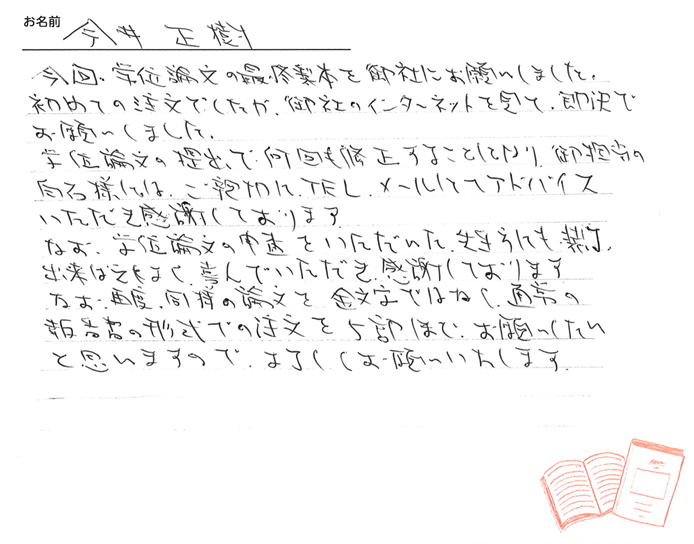 お名前
今井 正樹
今回、学位論文の最終製本を御社にお願いしました。
初めての注文でしたが、御社のインターネットを見て、即決で
お願いしました。
学位論文の提出で、何回も修正することになり、御担当の
様には、ご親切に、TEL、メールにてアドバイス
いただき感謝しております。
なお、学位論文の をいただいた、先生方にも
出来ばえもよく、喜んでいただき、感謝しております
なお、再度、同様の論文を、金文字ではなく、通常の
報告書の形式での注文を5部ほど、お願いしたい
と思いますので、よろしくお願いいたします。